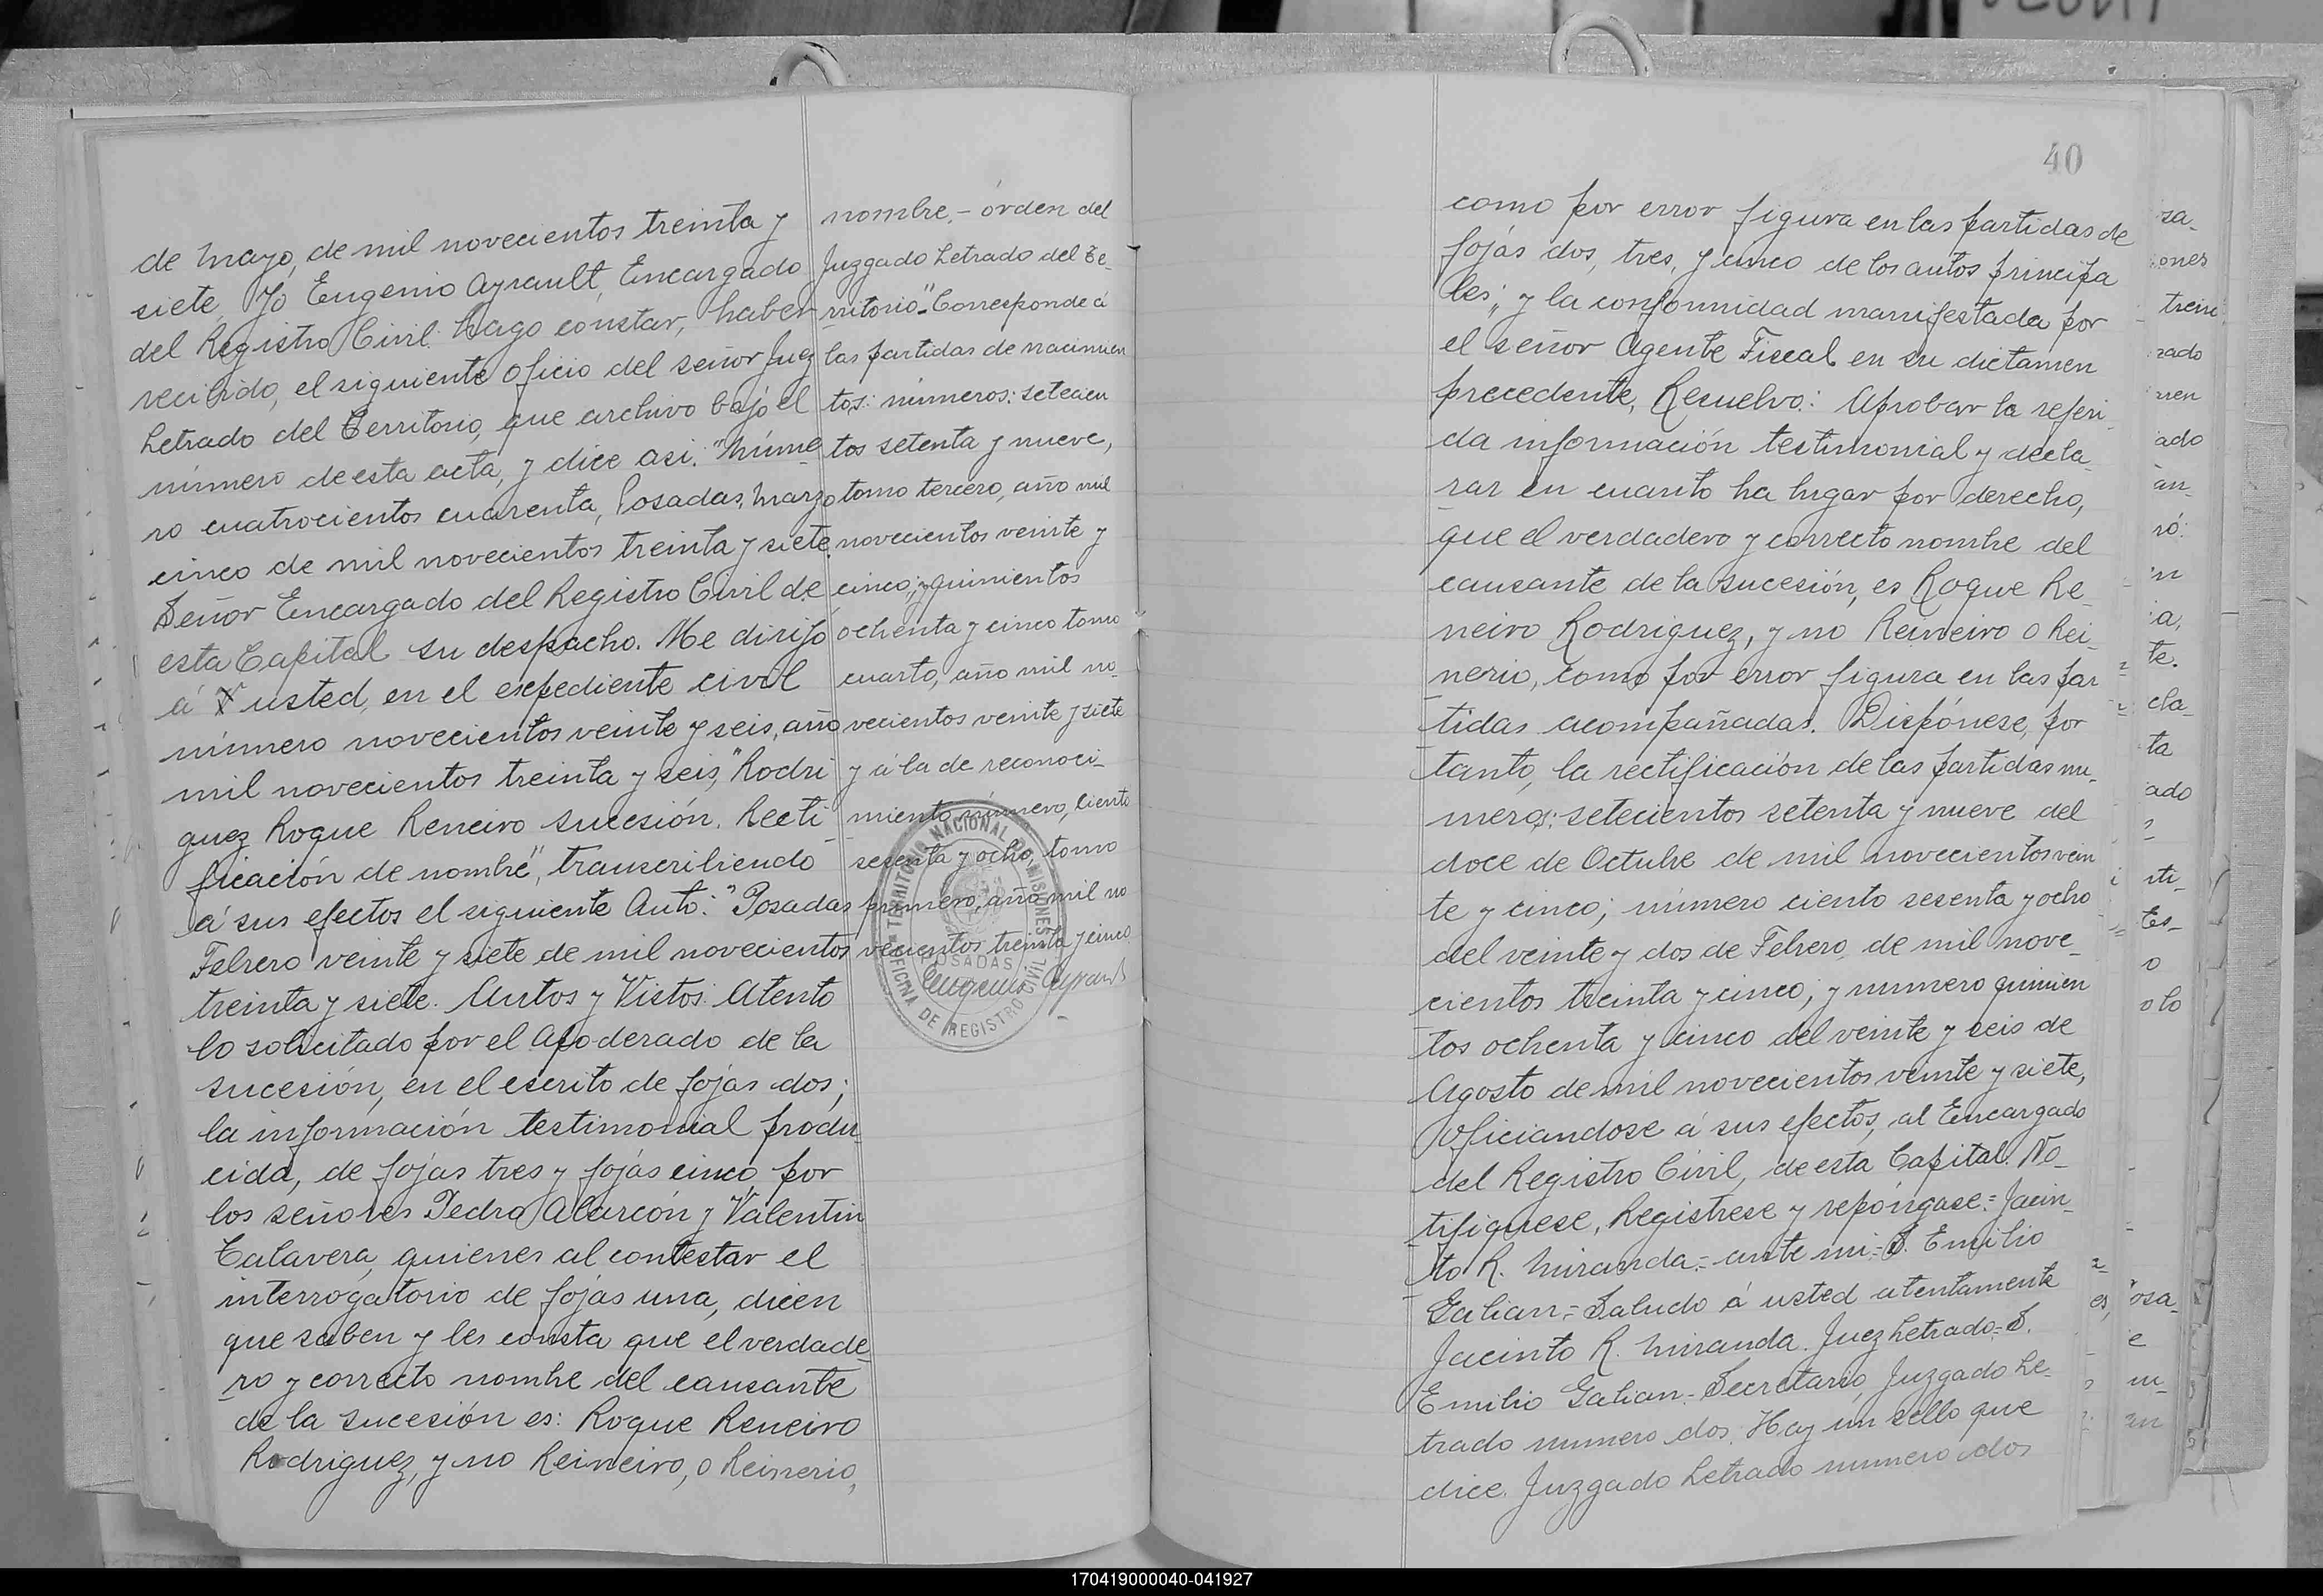 de Mayo, de mil novecientos treinta y
siete, Yo Eugenio Ayrault, Encargado
del Registro Civil hago constar, haber
recibido, el siguiente oficio del señor Juez
Letrado del Territorio, que archivo bajo el
número de esta acta, y dice asi: "Núme
ro cuatrocientos cuarenta, Posadas, Marzo
cinco de mil novecientos treinta y siete.
Señor Encargado del Registro Civil de
esta Capital su despacho. Me dirijo
á usted, en el expediente civil
número novecientos veinte y seis, año
mil novecientos treinta y seis, "Rodri
guez Roque Reneiro sucesión. Recti
ficación de nombre", transcribiendo
á sus efectos el siguiente Auto: "Posadas
Febrero veinte y siete de mil novecientos
treinta y siete. Autos y Vistos: Atento
lo solicitado por el Apoderado de la
sucesión, en el escrito de fojas dos;
la información testimonial produ
cida, de fojas tres y fojas cinco, por
los señores Pedro Alarcón y Valentin
Talavera, quienes al contestar el
interrogatorio de fojas una, dicen
que saben y les consta que el verdade_
ro y correcto nombre del causante
de la sucesión es: Roque Reneiro
Rodriguez, y no Reineiro, o Reinerio,
nombre.- órden del
Juzgado Letrado del Te_
rritorio".- Corresponde á
las partidas de nacimien
tos: números: setecien
tos setenta y nueve,
tomo tercero, año mil
novecientos veinte y
cinco; y quinientos
ochenta y cinco tomo
cuarto, año mil no_
vecientos veinte y siete
y á la de reconoci_
miento número, ciento
sesenta y ocho, tomo
primero, año mil no
vecientos treinta y cinco
Eugenio Ayrault
TERRITORIO NACIONAL MISIONES
POSADAS
OFICINA DE REGISTRO CIVIL
40
como por error figura en las partidas de
fojas dos, tres, y cinco de los autos principa
les; y la conformidad manifestada por
el señor Agente Fiscal en su dictamen
precedente, Resuelvo: Aprobar la referi_
da información testimonial y decla_
rar en cuanto ha lugar por derecho,
que el verdadero y correcto nombre del
causante de la sucesión, es Roque Re_
neiro Rodriguez, y no Reineiro o Rei_
nerio, como por error figura en las par
tidas acompañadas. Dispónese, por
tanto, la rectificación de las partidas nu_
meros: setecientos setenta y nueve del
doce de Octubre de mil novecientos vein
te y cinco; número ciento sesenta y ocho
del veinte y dos de Febrero, de mil nove_
cientos treinta y cinco; y numero quinien
tos ochenta y cinco del veinte y seis de
Agosto de mil novecientos veinte y siete,
oficiandose á sus efectos, al Encargado
del Registro Civil, de esta Capital. No_
tifiquese, Registrese y repóngase.= Jacin_
to R. Miranda.= ante mi.= S. Emilio
Galian.= Saludo á usted atentamente
Jacinto R. Miranda. Juez Letrado.= S.
Emilio Galian.= Secretario, Juzgado Le_
trado numero dos. Hay un sello que
dice. Juzgado Letrado numero dos
za_
ones
trein
rado
nen
ado
an_
ró:
in
ia,
te.
cla_
ta
ado
sti_
Tes_
o
o lo
osa_
e
un
170419000040-041927